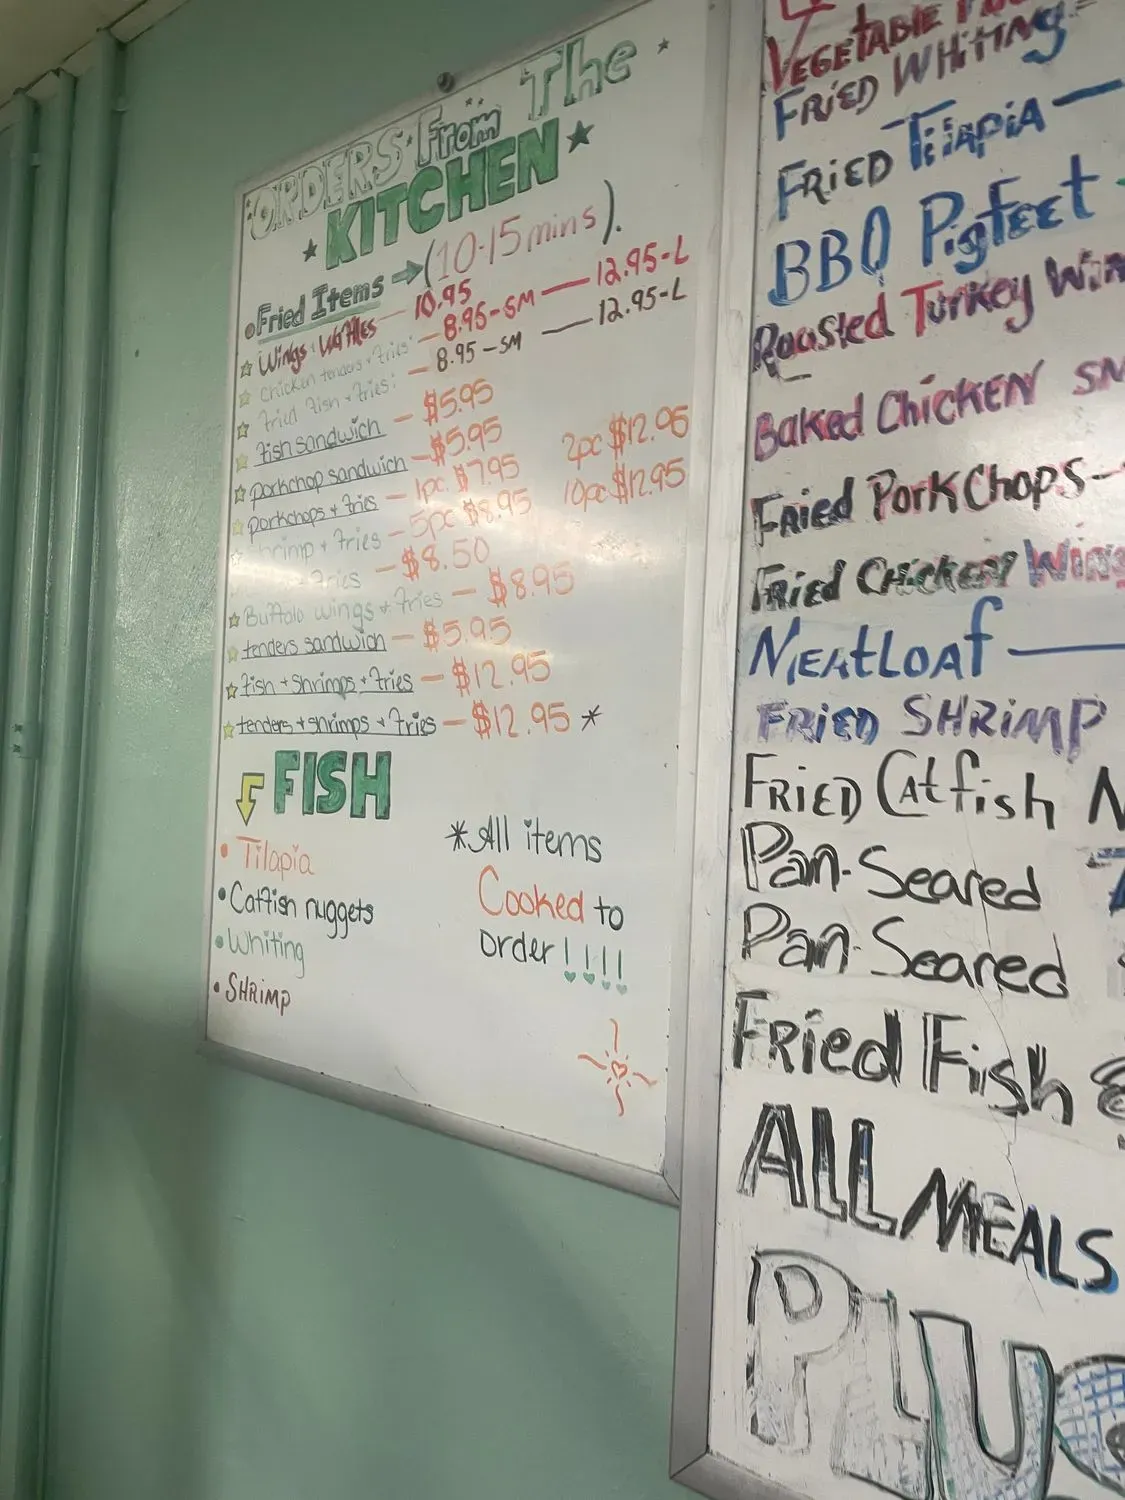 ORDERS From The
KITCHEN
Fried Items → (10-15 mins).
Wings + Waffles — 10.95
chicken tenders + fries: — 8.95-SM — 12.95-L
fried fish + fries: — 8.95-SM — 12.95-L
fish sandwich — $5.95
porkchop sandwich — $5.95
porkchops + fries — 1pc. $7.95 2pc $12.95
shrimp + fries — 5pc $8.95 10pc $12.95
fries — $8.50
Buffalo wings + fries — $8.95
tenders sandwich — $5.95
fish + shrimps + fries — $12.95
tenders + shrimps + fries — $12.95 *
FISH
• Tilapia
• Catfish nuggets
• Whiting
• SHRIMP
*All items
Cooked to
order!!!!
VEGETABLE
FRIED WHITING
FRIED Tilapia —
BBQ Pigfeet
Roasted Turkey
Baked Chicken
Fried PorkChops-
Fried Chicken
MEATLOAF —
FRIED SHRIMP
FRIED Catfish
Pan-Seared
Pan-Seared
Fried Fish
ALL MEALS